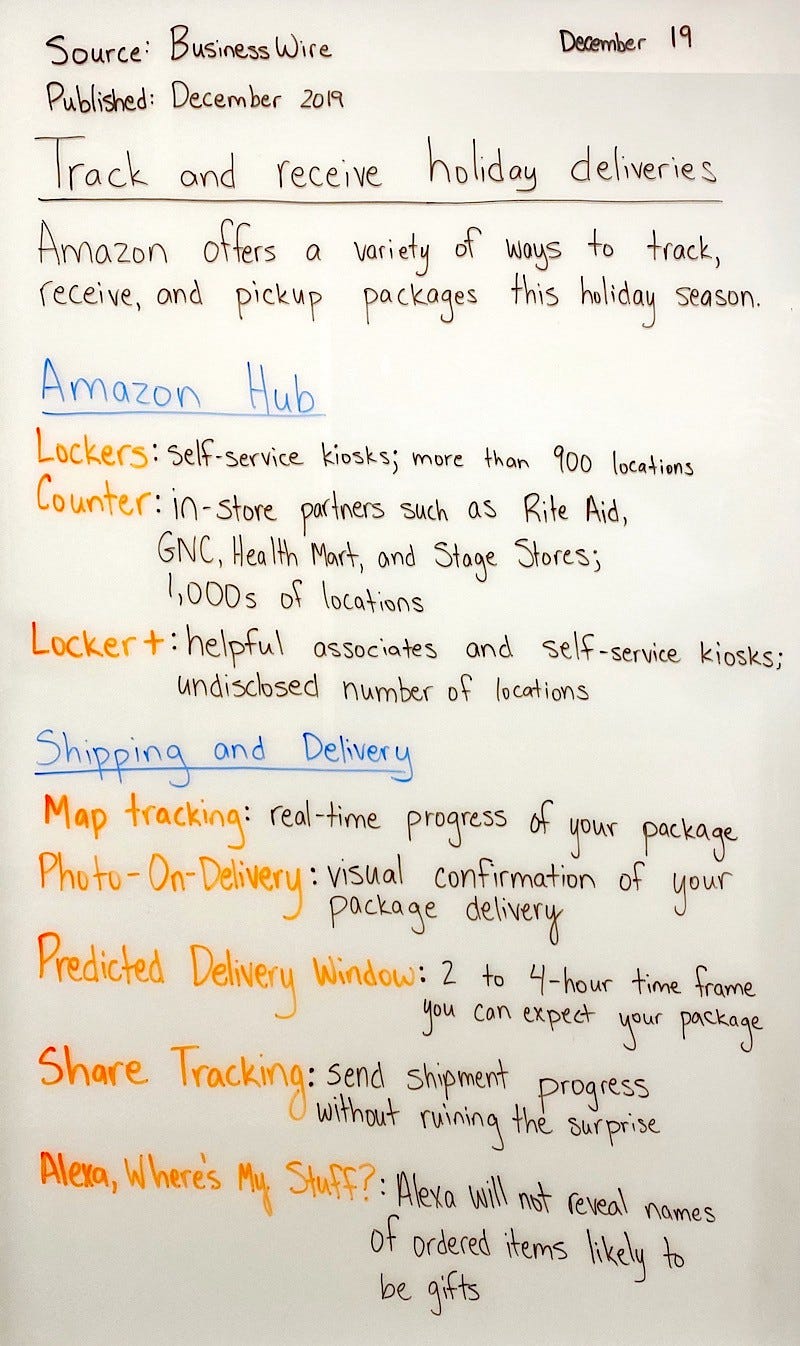 Source: Business Wire
December 19
Published: December 2019
Track and receive holiday deliveries
Amazon offers a variety of ways to track,
receive, and pickup packages this holiday season.
Amazon Hub
Lockers: self-service kiosks; more than 900 locations
Counter: in-store partners such as Rite Aid,
GNC, Health Mart, and Stage Stores;
1,000s of locations
Locker+: helpful associates and self-service kiosks;
undisclosed number of locations
Shipping and Delivery
Map tracking: real-time progress of your package
Photo-On-Delivery: visual confirmation of your
package delivery
Predicted Delivery Window: 2 to 4-hour time frame
you can expect your package
Share Tracking: send shipment progress
without ruining the surprise
Alexa, Where's My Stuff?: Alexa will not reveal names
of ordered items likely to
be gifts